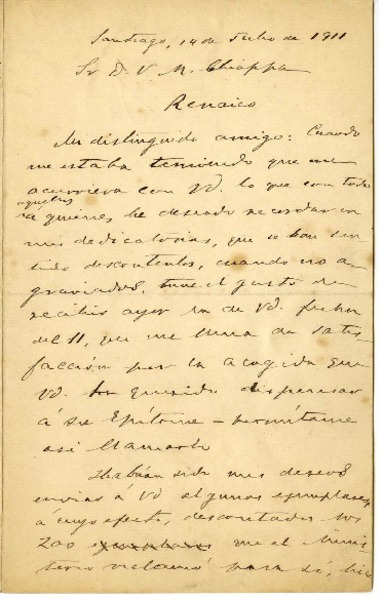 Santiago, 14 de Julio de 1911
Sr D. V. M. Chiappa
Renaico
Mi distinguido amigo: Cuando
me estaba temiendo que me
ocurriera con Vd. lo que con todos
aquellos
á quienes he deseado recordar en
mis dedicatorias, que se han sen
tido descontentos, cuando no a-
graviados, tuve el gusto de
recibir ayer la de Vd. fecha
del 11, que me llena de satis-
facción por la acogida que
Vd. ha querido dispensar
á su Epítome - permítame
así llamarlo
Habían sido mis deseos
enviar á Vd algunos ejemplares,
á cuyo efecto, descontados los
200 ejemplares me el Minis
terio reclamó para sí, hice